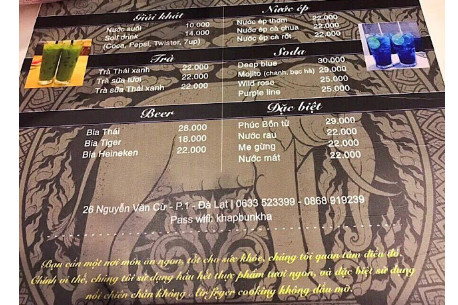 Giải khát
Nước suối 10.000
Soft drink 14.000
(Coca, Pepsi, Twister, 7up)
Nước ép
Nước ép thơm 22.000
Nước ép cà chua 22.000
Nước ép cà rốt 22.000
Trà
Trà Thái xanh 22.000
Trà sữa tươi 22.000
Trà sữa Thái xanh 22.000
Soda
Deep blue 30.000
Mojito (chanh, bạc hà) 29.000
Wild rose 25.000
Purple line 25.000
Beer
Bia Thái 28.000
Bia Tiger 18.000
Bia Heineken 22.000
Đặc biệt
Phúc Bồn tử 29.000
Nước râu 22.000
Me gừng 22.000
Nước mát 22.000
26 Nguyễn Văn Cừ - P.1 - Đà Lạt | 0633 523399 - 0868 919239
Pass wifi: khapbunkha
Bạn cần một nơi món ăn ngon, tốt cho sức khỏe, chúng tôi quan tâm điều đó.
Chính vì thế, chúng tôi sử dụng hầu hết thực phẩm tươi ngon, và đặc biệt sử dụng
nồi chiên chân không - air fryer cooking không dầu mỡ.